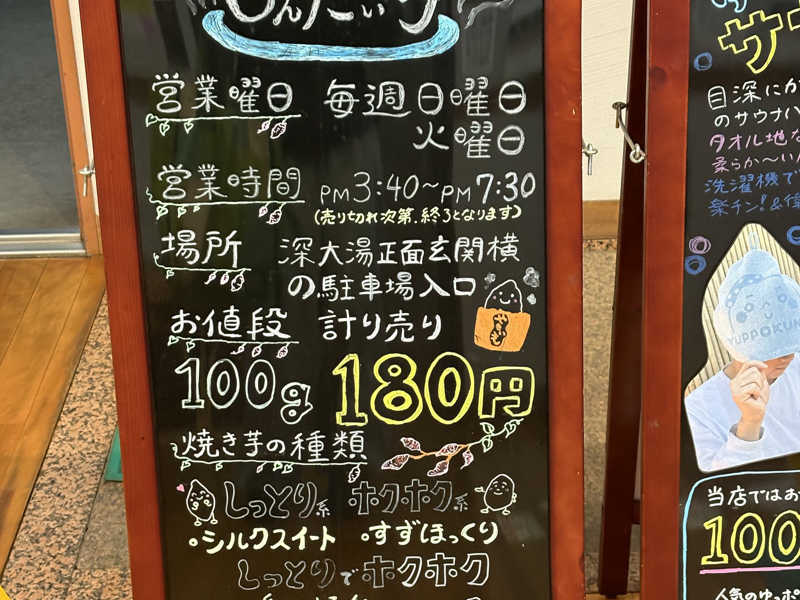 営業曜日 毎週日曜日
火曜日
営業時間 PM3:40～PM7:30
(売り切れ次第、終了となります)
場所 深大湯正面玄関横
の駐車場入口
お値段 計り売り
100g 180円
焼き芋の種類
しっとり系 ホクホク系
・シルクスイート ・すずほっくり
しっとりでホクホク
目深にか
のサウナハ
タオル地な
柔らか〜い
洗濯機で
楽チン!&
YUPPOKUN
当店ではお
100
人気のゆっポ